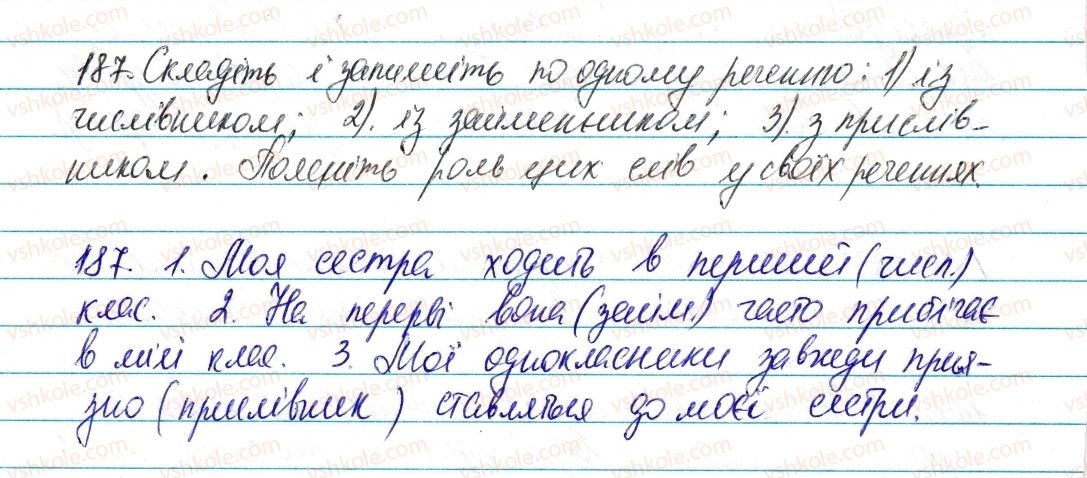 187. Складіть і запишіть по одному реченню: 1) із
числівником; 2). із займенником; 3). з прислів-
ником. Поясніть роль цих слів у своїх реченнях.
187. 1. Моя сестра ходить в перший (числ.)
клас. 2. На перерві вона (займ.) часто прибігає
в мій клас. 3. Мої однокласники завжди прия-
зно (прислівник) ставляться до моєї сестри.